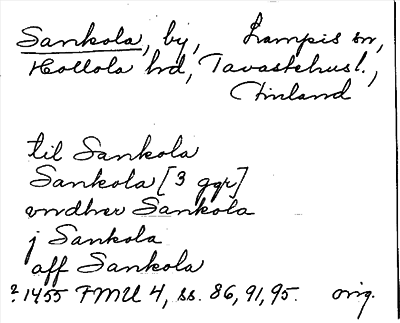 Sankola, by, Lampis sn,
Hollola hd, Tavastehusl.,
Finland
til Sankola
Sankola [3 ggr]
vndher Sankola
j Sankola
aff Sankola
? 1455 FMU 4, ss. 86, 91, 95. orig.